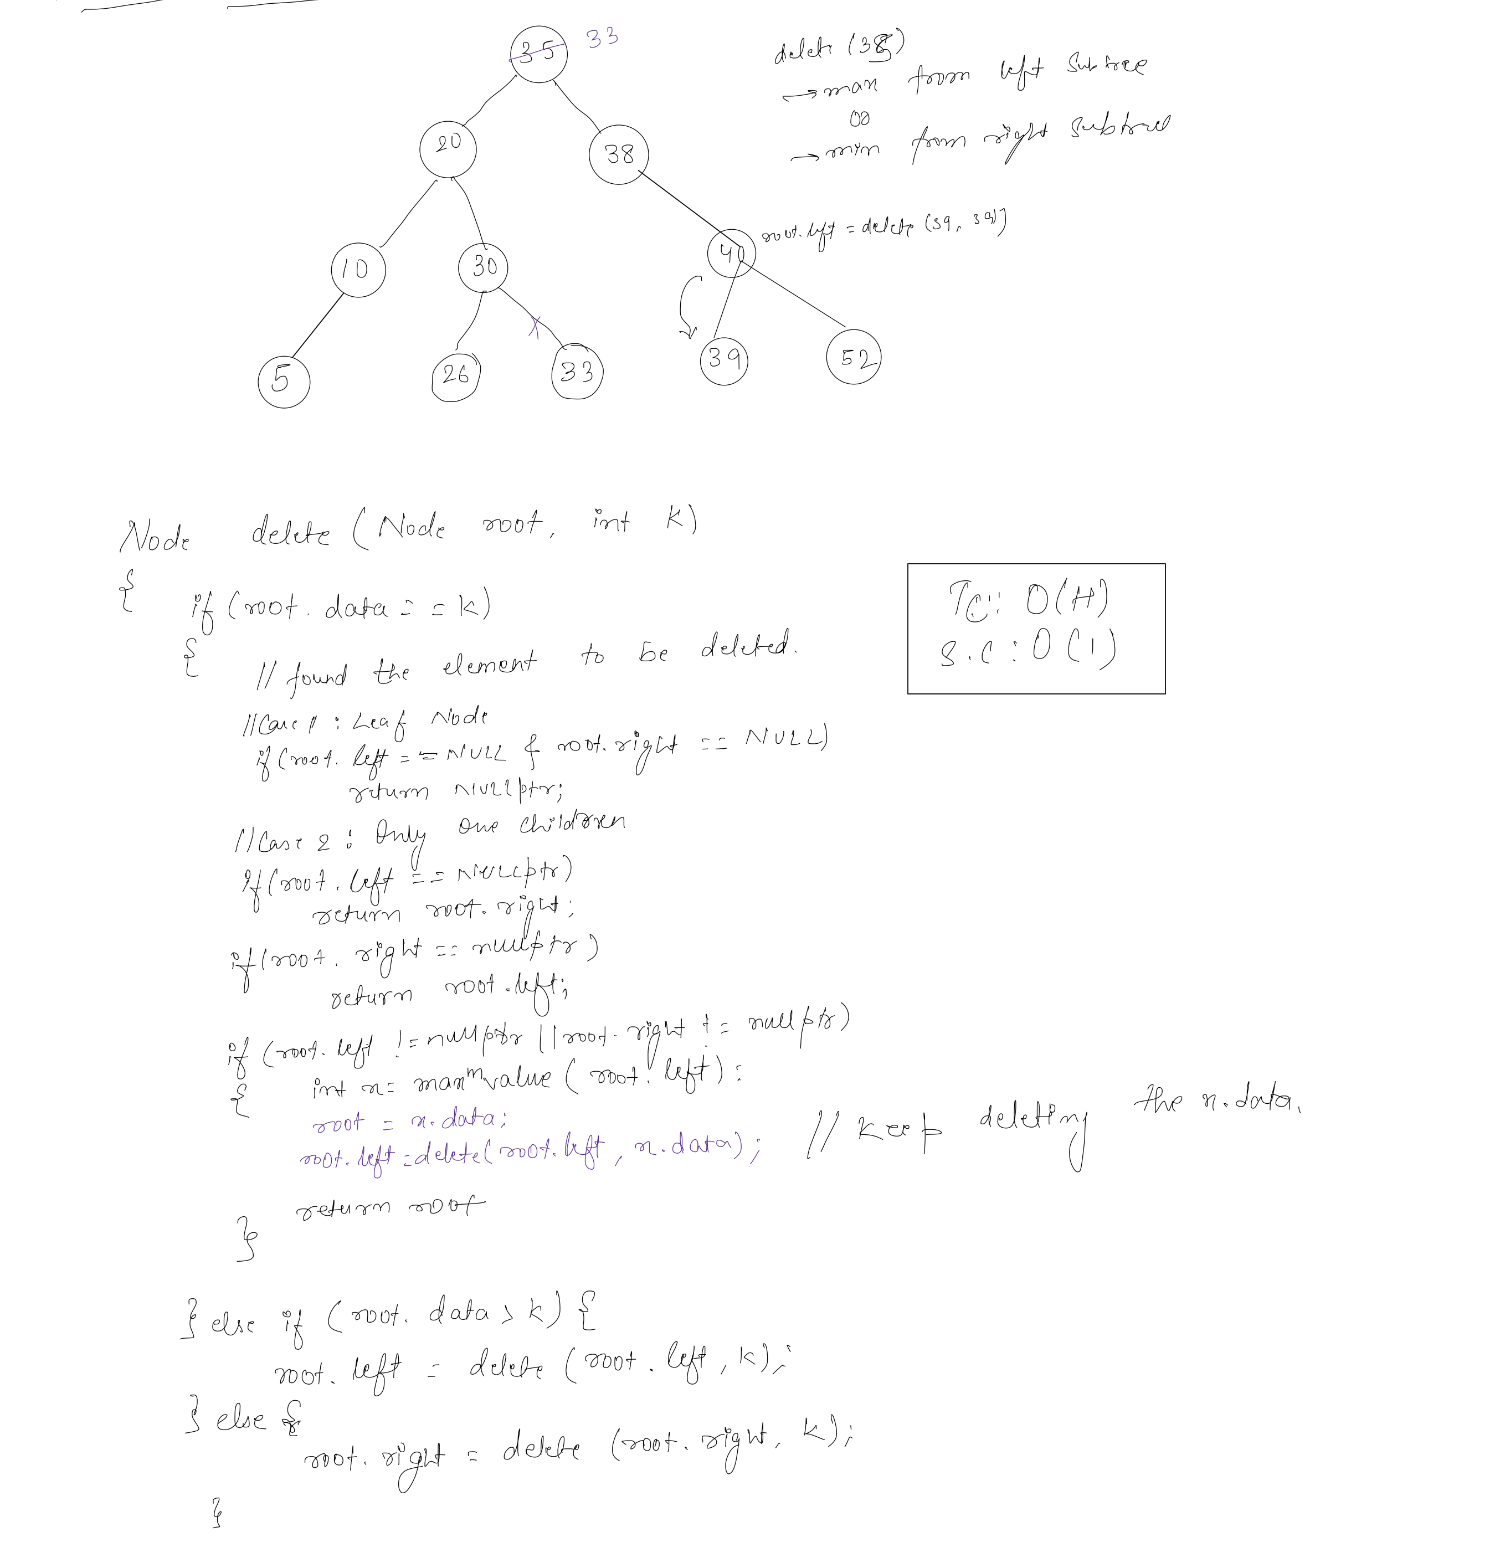 35 33
20
38
10
30
40
5
26
33
39
52
delete (35)
→ max from left subtree
or
→ min from right subtree
root.left = delete (39, 39)
Node delete (Node root, int k)
{
if (root. data == k)
{
// found the element to be deleted.
// Case 1 : Leaf Node
if (root. left == NULL & root.right == NULL)
return NULLptr;
// Case 2 : Only one children
if (root. left == NULLptr)
return root. right;
if (root. right == nullptr)
return root.left;
if (root. left != nullptr || root. right != nullptr)
{ int x = maxm value (root. left);
root = x.data;
root. left = delete(root. left, x.data); // keep deleting the x.data.
return root
}
} else if (root. data > k) {
root. left = delete (root. left, k);
} else {
root. right = delete (root. right, k);
}
TC: O(H)
S.C : O(1)